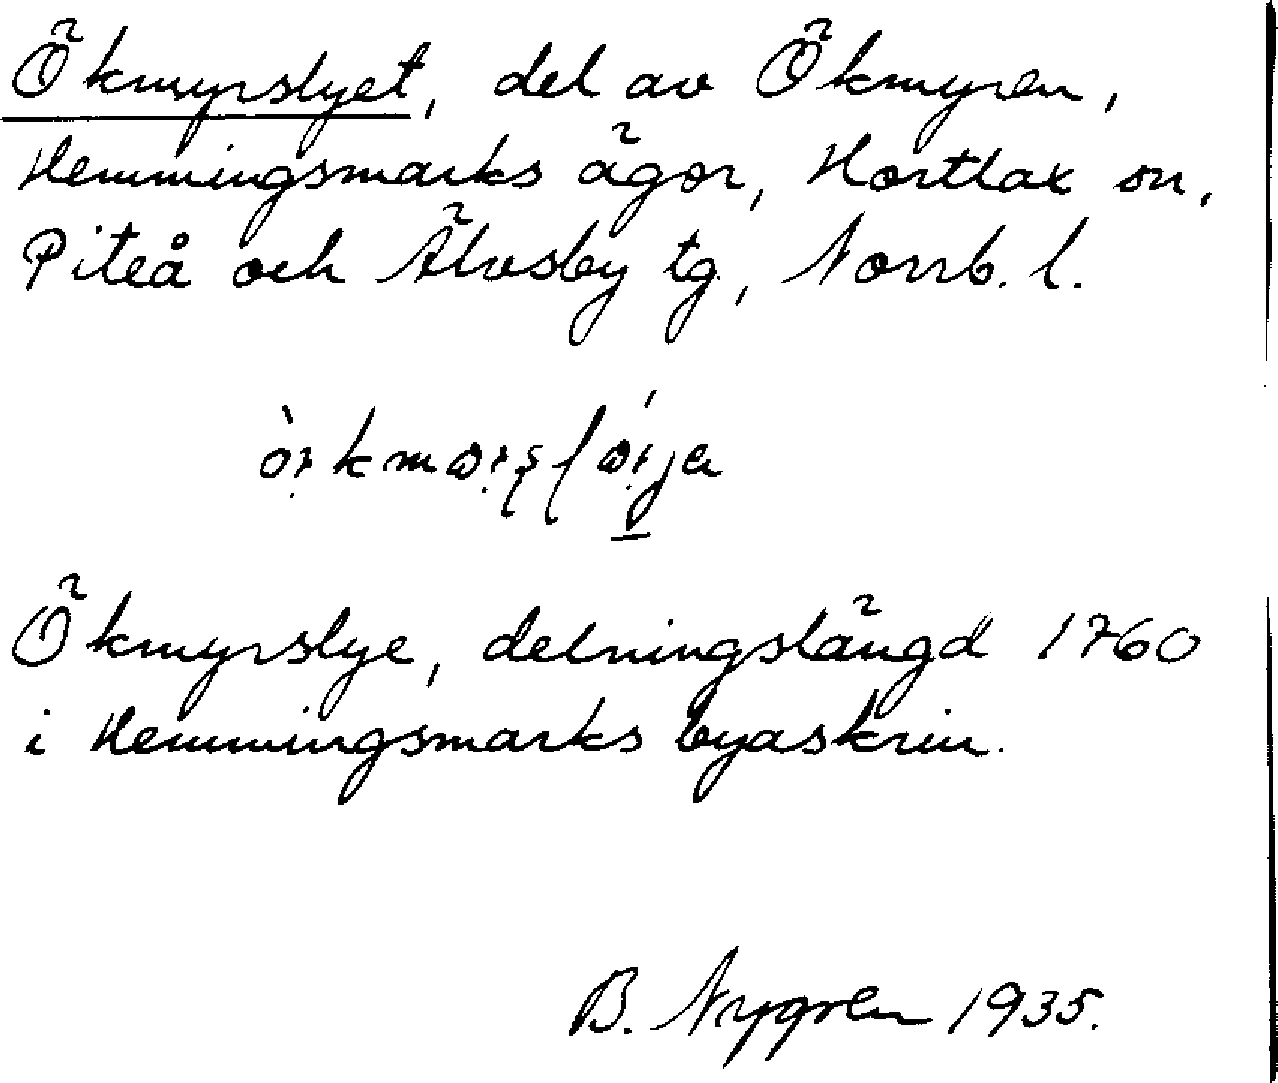 Ökmyrslyet, del av Ökmyren,
Hemmingsmarks ägor, Hortlax sn,
Piteå och Älvsby tg, Norrb. l.
Ökmyrslye, delningslängd 1760
i Hemmingsmarks byaskrin.
B. Nygren 1935.